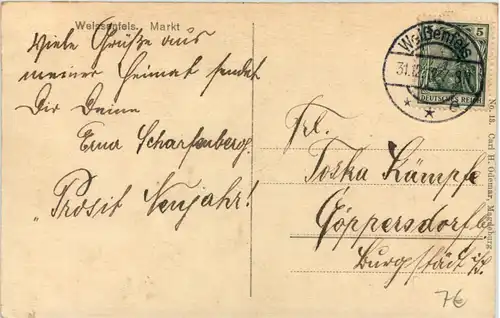 Weissenfels. Markt
Viele Grüße aus
meiner Heimat sendet
Dir Deine
Erna Scharfenberg.
"Prosit Neujahr!
5
Weißenfels
31.12.
DEUTSCHES REICH
* * c
Frl.
Toska Kämpfe
Göppersdorf b.
Burgstädt i/S.
No. 18. Carl H. Odemar, Magdeburg
7€